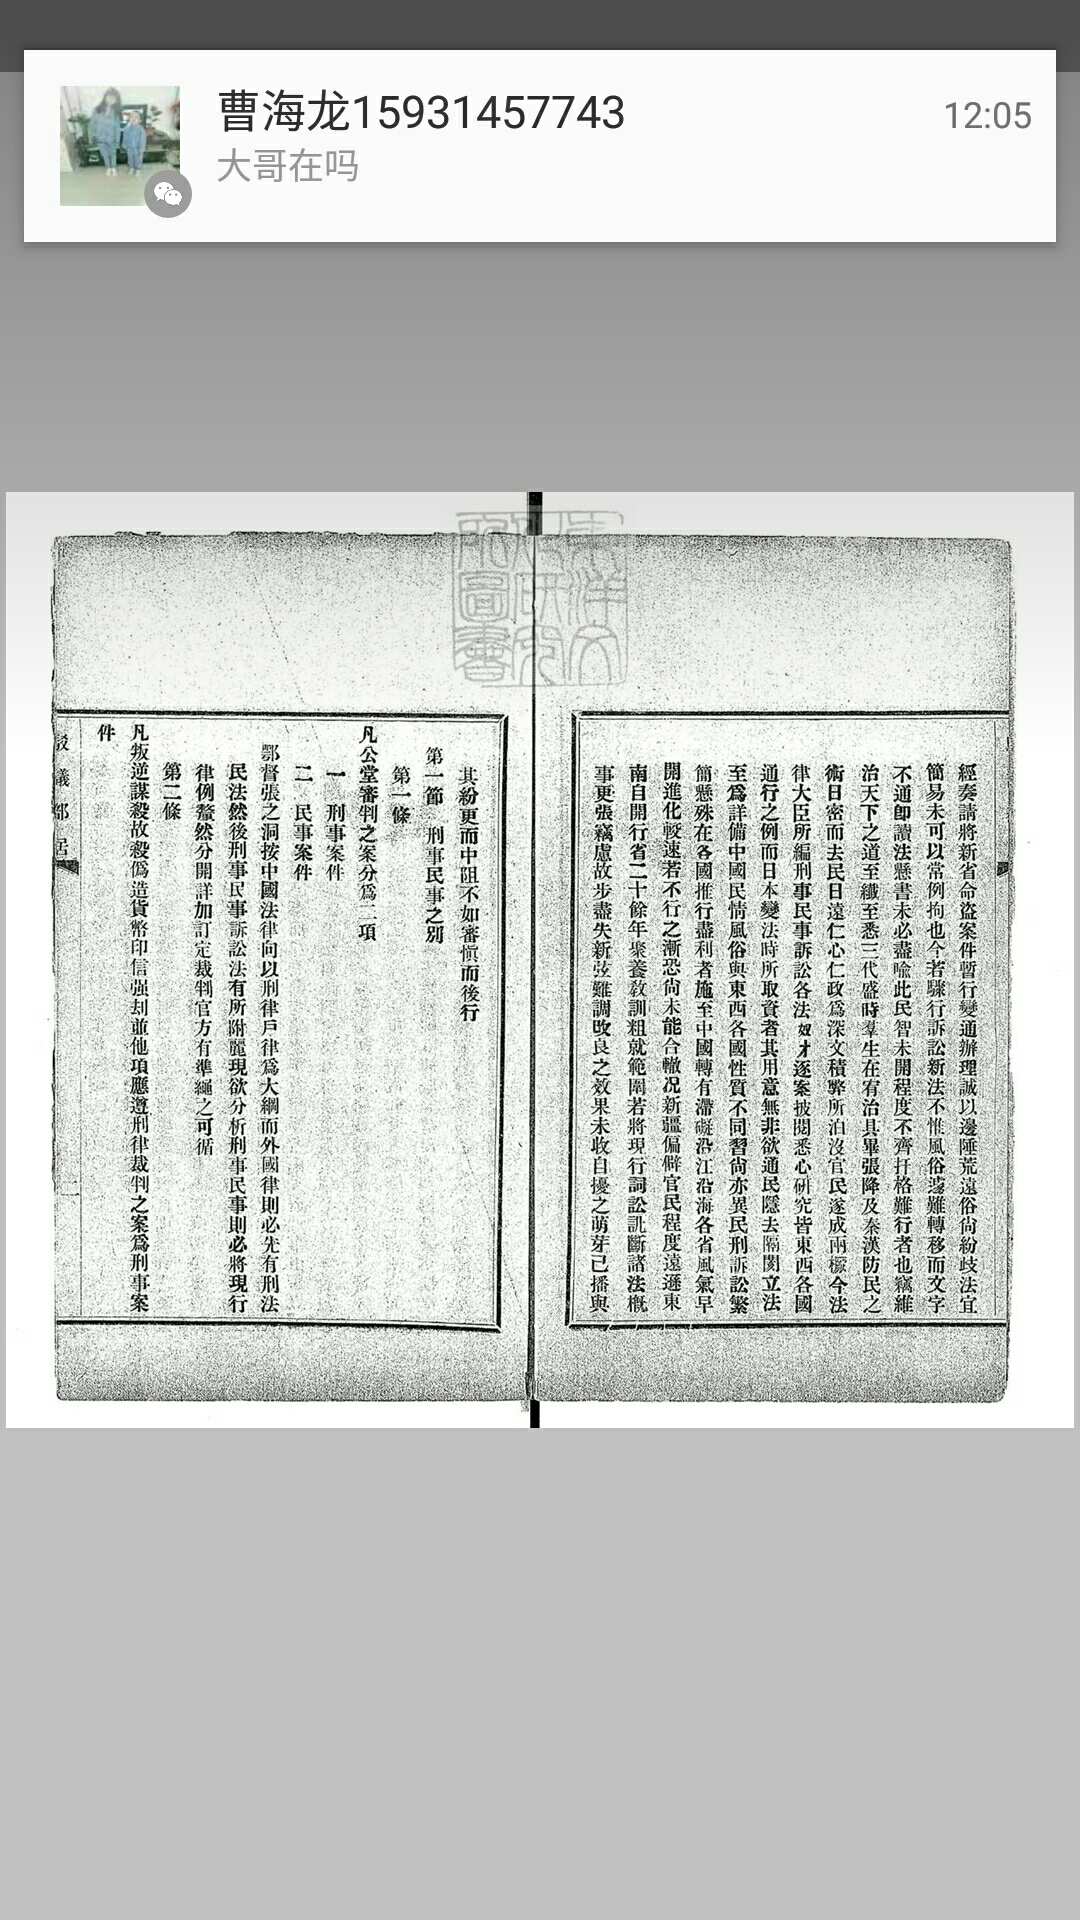 曹海龙15931457743
12:05
大哥在吗
經奏請將新省命盜案件暫行變通辦理誠以邊陲荒遠俗尙紛歧法宜
簡易未可以常例拘也今若驟行訴訟新法不惟風俗遽難轉移而文字
不通卽讀法懸書未必盡喩此民智未開程度不齊扞格難行者也竊維
治天下之道至纖至悉三代盛時羣生在宥治具畢張降及秦漢防民之
術日密而去民日遠仁心仁政爲深文積弊所泊沒官民遂成兩橛今法
律大臣所編刑事民事訴訟各法奴才逐案披閱悉心硏究皆東西各國
通行之例而日本變法時所取資者其用意無非欲通民隱去隔閡立法
至爲詳備中國民情風俗與東西各國性質不同習尙亦異民刑訴訟繁
簡懸殊在各國推行盡利者施至中國轉有滯礙沿江沿海各省風氣早
開進化較速若不行之漸恐尙未能合轍况新疆偏僻官民程度遠遜東
南自開行省二十餘年衆養敎訓粗就範圍若將現行詞訟訊斷諸法槪
事更張竊慮故步盡失新弦難調改良之效果未收自擾之萌芽已播與
其紛更而中阻不如審愼而後行
第一節 刑事民事之別
第一條
凡公堂審判之案分爲二項
一 刑事案件
二 民事案件
鄂督張之洞按中國法律向以刑律戶律爲大綱而外國律則必先有刑法
民法然後刑事民事訴訟法有所附麗現欲分析刑事民事則必將現行
律例釐然分開詳加訂定裁判官方有準繩之可循
第二條
凡叛逆謀殺故殺僞造貨幣印信强刦並他項應遵刑律裁判之案爲刑事案
件